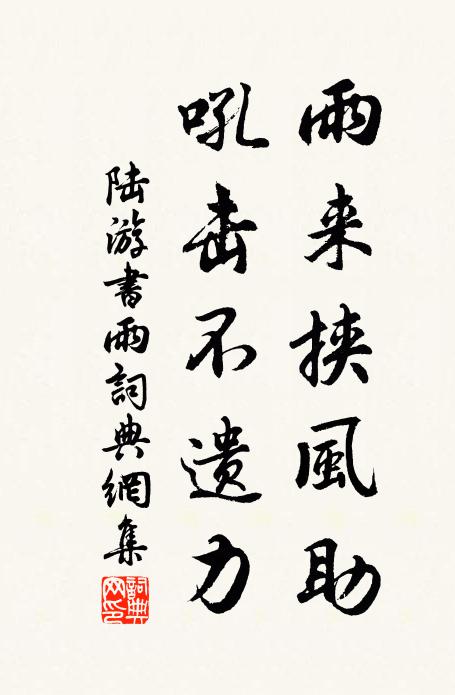 雨来挾風助
吼击不遗力
陆游書雨詞典網集
詞典网印